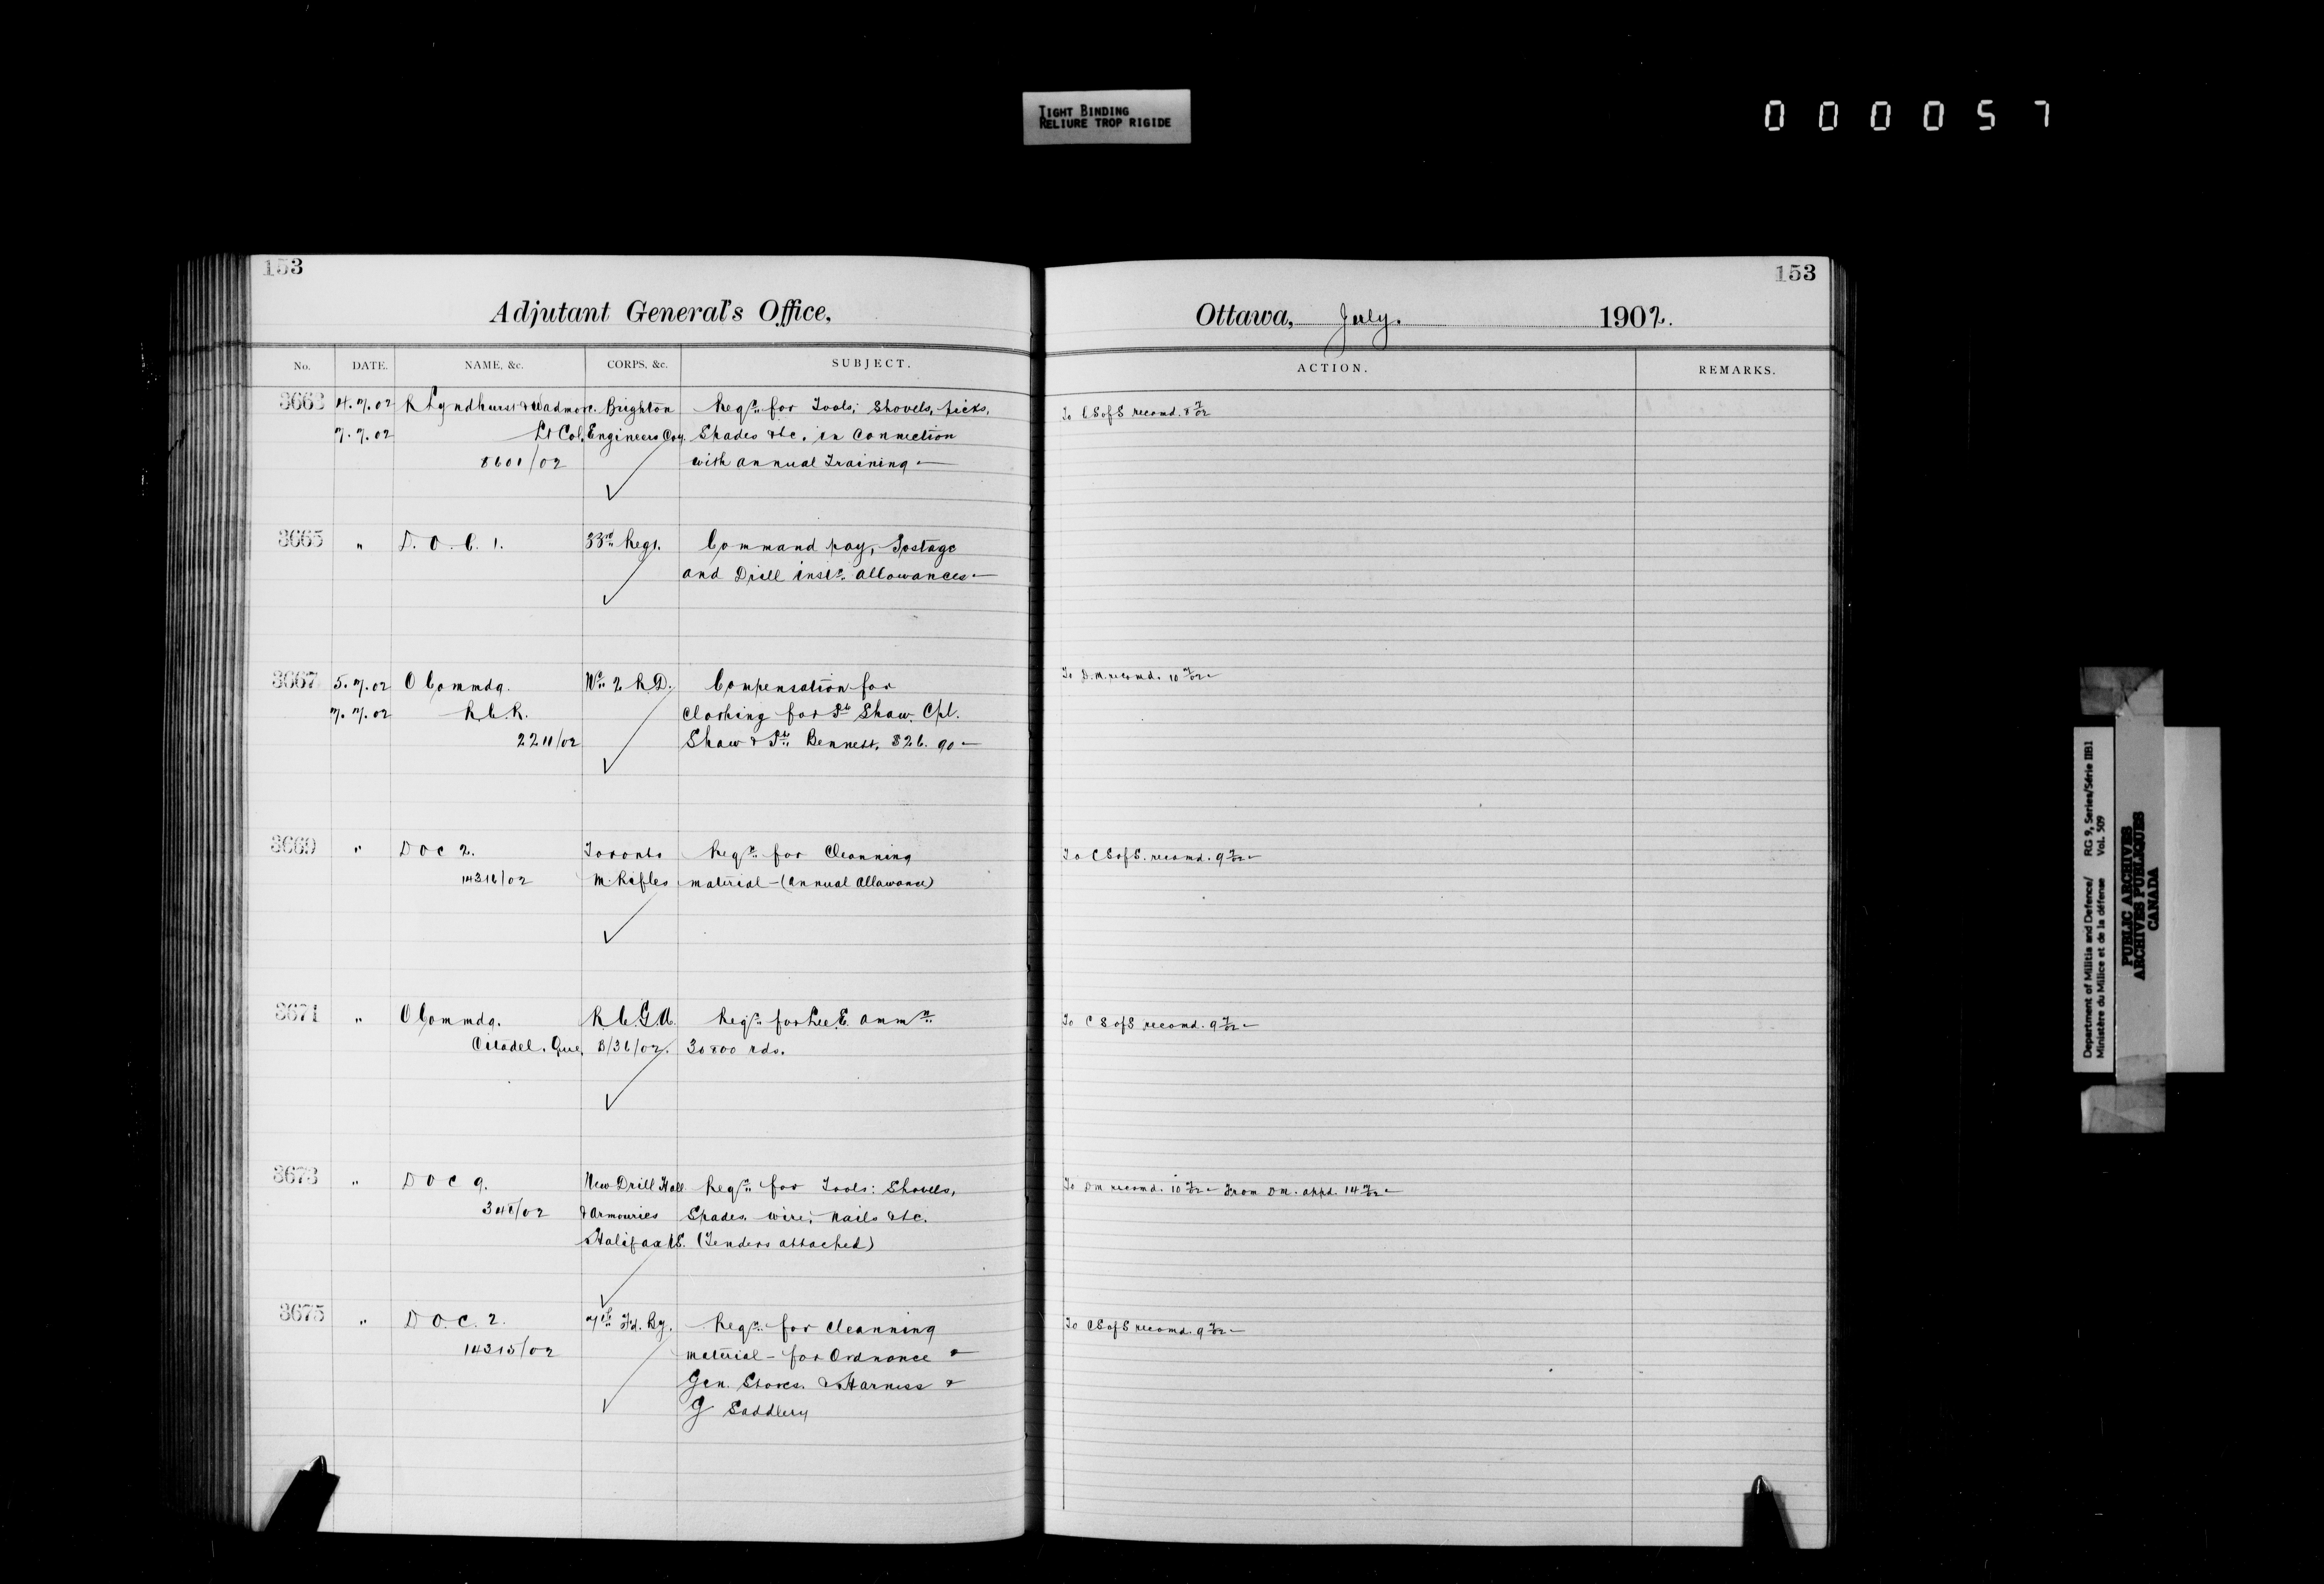 TIGHT BINDING
RELIURE TROP RIGIDE
000057
153
Adjutant General's Office,
No. DATE. NAME, &c. CORPS, &c. SUBJECT.
3663 4.7.02 R Lyndhurst & Wadmore. Brighton Reqn. for Tools; Shovels, picks,
7.7.02 Lt Col. Engineers Coy. Spades &c. in connection
8601/02 with annual Training —
3665 " D.O.C. 1. 33rd Regt. Command pay, Postage
and Drill instn. allowances —
3667 5.7.02 O Commdg. No. 2 R.D. Compensation for
7.7.02 R.C.R. Clothing for Pte Shaw. Cpl.
2211/02 Shaw & Pte. Bennett. $26.90 —
3669 " D O C 2. Toronto Reqn. for Cleanning
14316/02 M. Rifles material — (annual Allowance)
3671 " O Commdg. R.C.G.A. Reqn. for Lee E. ammn.
Citadel. Que. B/36/02. 30800 rds.
3673 " D O C 9. New Drill Hall Reqn. for Tools: Shovels,
348/02 & Armouries Spades. wire; nails &c.
Halifax N.S. (Tenders attached)
3675 " D O.C. 2. 7th Fd. By. Reqn. for Cleanning
14315/02 material — for Ordnance &
Gen. Stores. & Harness &
G Saddlery
153
Ottawa, July. 1902.
ACTION. REMARKS.
To C S of S recomd. 8 7/02
To D.M. recomd. 10 7/02 —
To C S of S. recomd. 9 7/02 —
To C S of S recomd. 9 7/02 —
To DM recomd. 10 7/02 — From DM. appd. 14 7/02 —
To C S of S recomd. 9 7/02 —
Department of Militia and Defence/ RG 9, Series/Série IIB1
Ministère du Milice et de la défense Vol. 509
PUBLIC ARCHIVES
ARCHIVES PUBLIQUES
CANADA